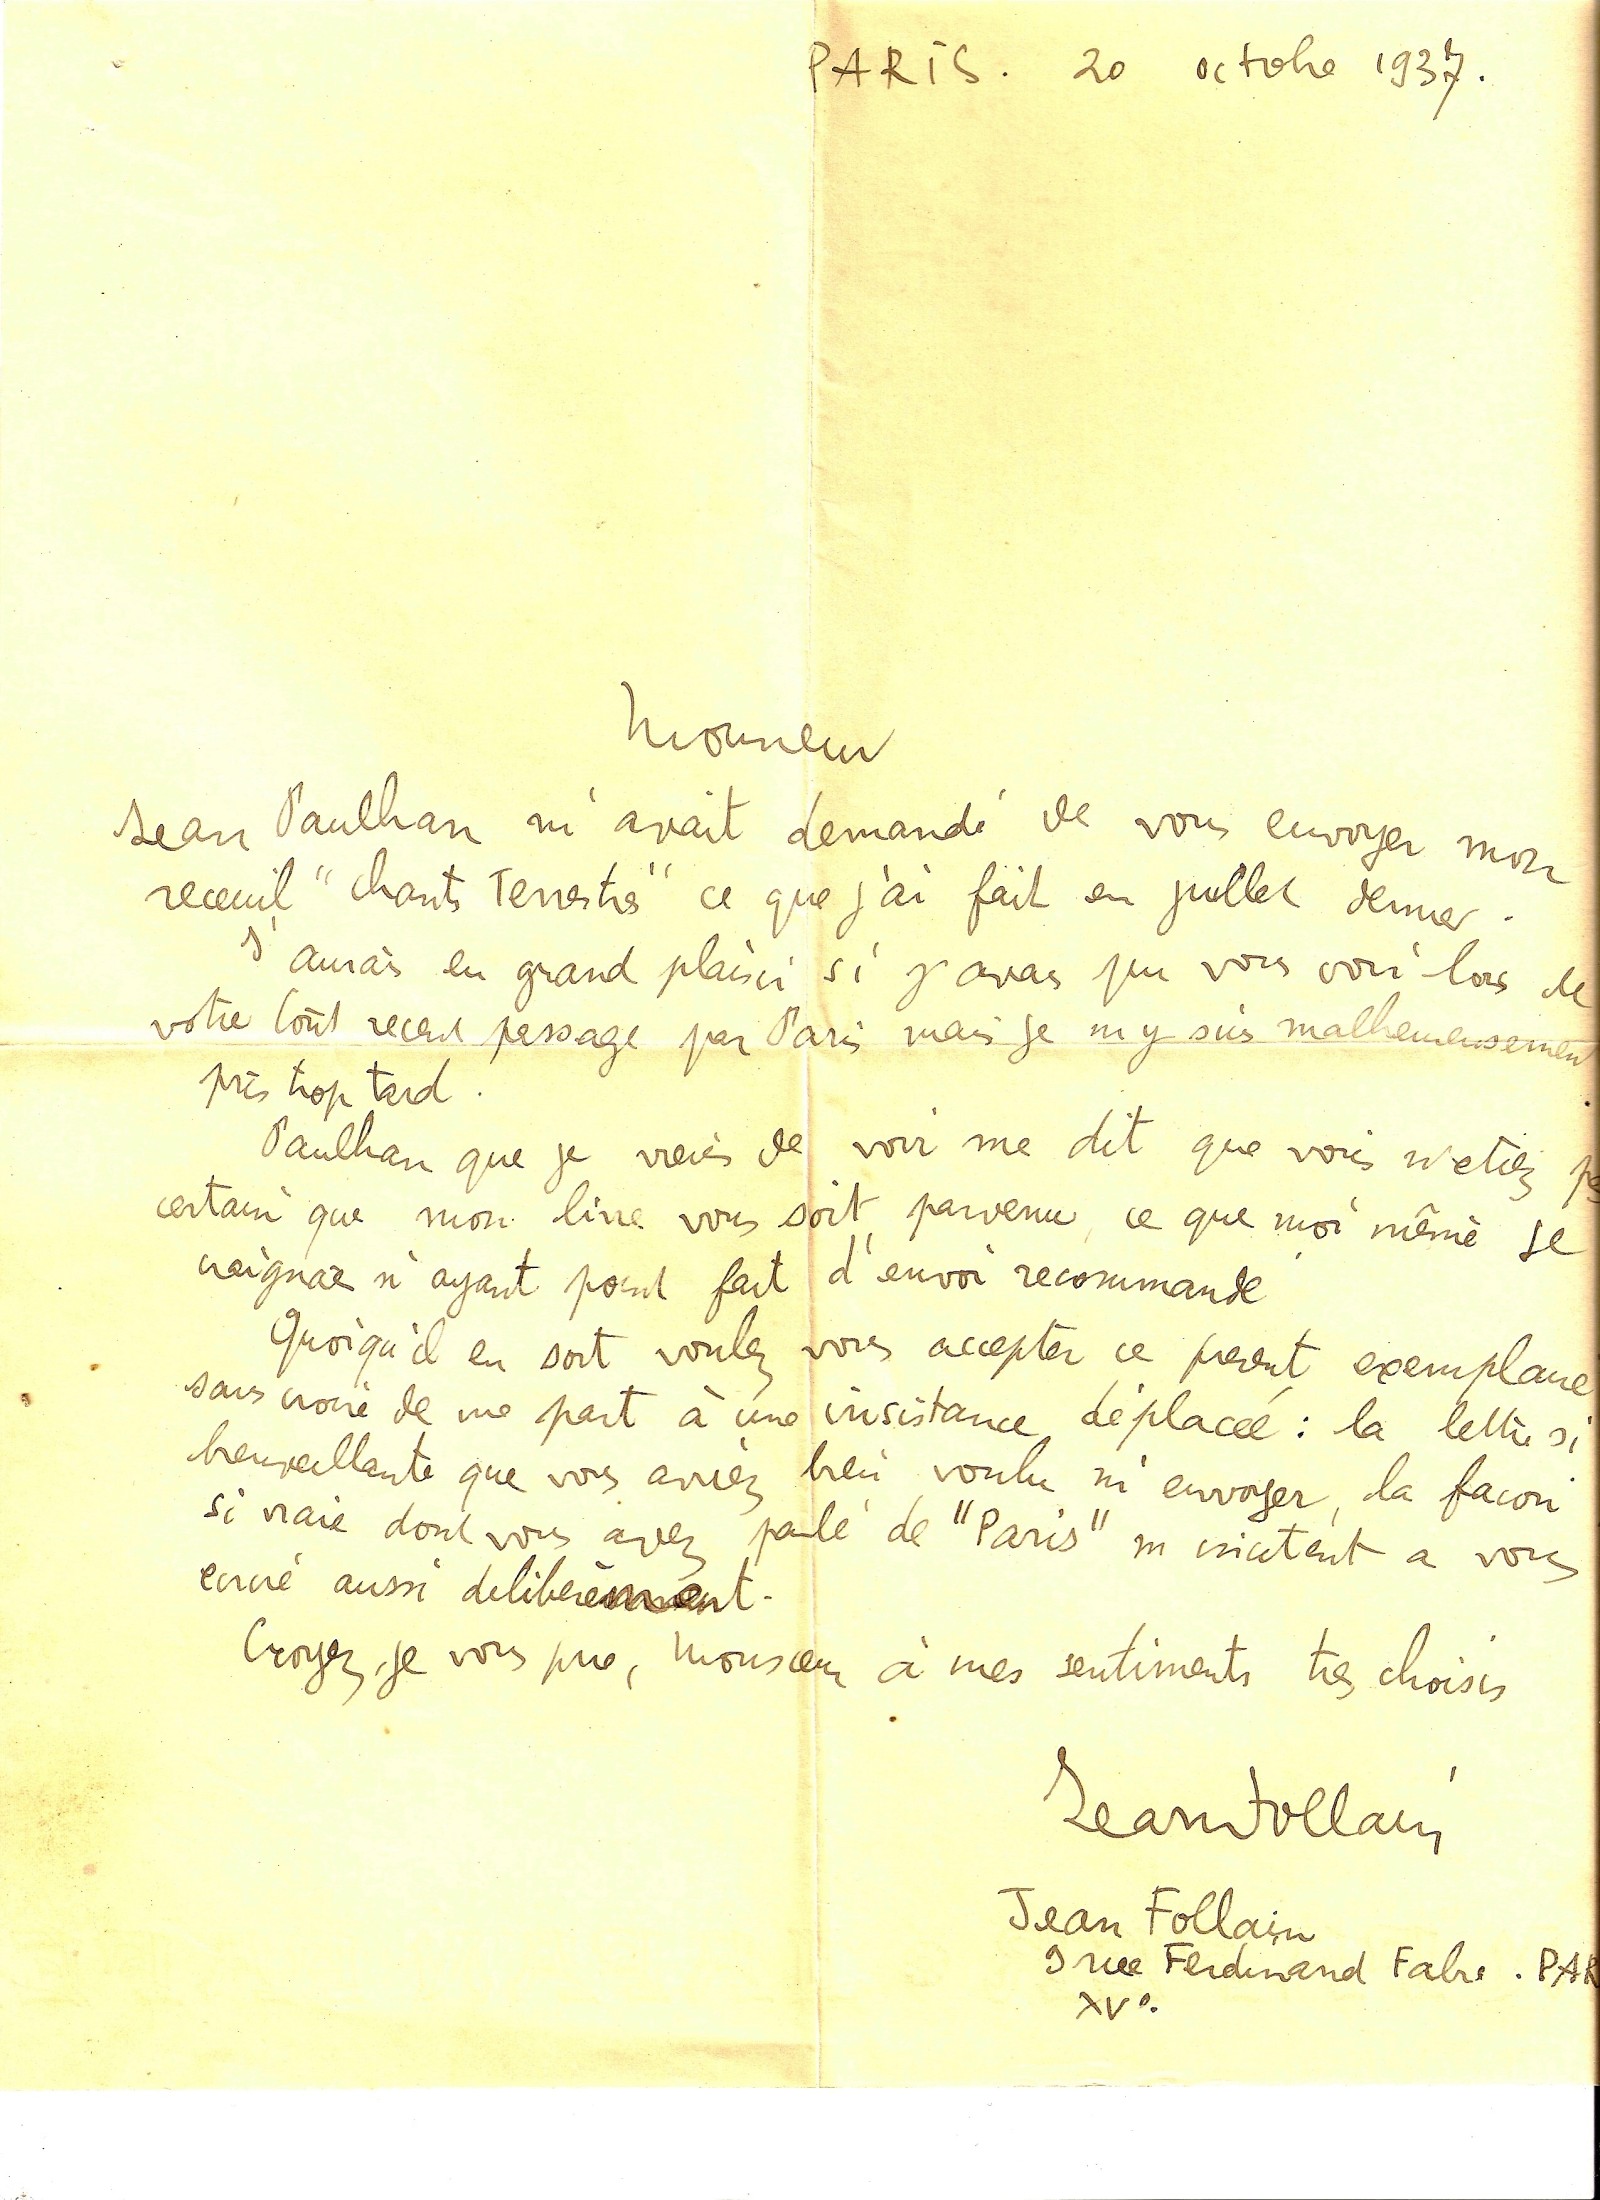 PARIS. 20 octobre 1937.
Monsieur
Jean Paulhan m'avait demandé de vous envoyer mon
receuil "chants Terrestres" ce que j'ai fait en juillet dernier.
J'aurais eu grand plaisir si j'avais pu vous voir lors de
votre tout recent passage par Paris mais je m'y suis malheureusement
pris trop tard.
Paulhan que je viens de voir me dit que vous n'etiez pas
certain que mon livre vous soit parvenu, ce que moi même je
craignais n'ayant point fait d'envoi recommandé
Quoiqu'il en soit voulez vous accepter ce present exemplaire
sans croire de ma part à une insistance déplacée : la lettre si
bienveillante que vous aviez bien voulu m'envoyer, la facon
si vraie dont vous avez parlé de "Paris" m'incitent a vous
ecrire aussi deliberément.
Croyez, je vous prie, Monsieur à mes sentiments tres choisis
Jean Follain
Jean Follain
9 rue Ferdinand Fabre . PAR
XVe.